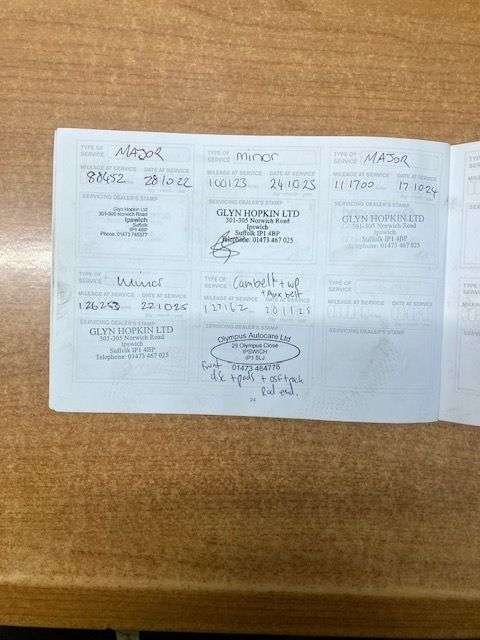 TYPE OF SERVICE MAJOR
MILEAGE AT SERVICE DATE AT SERVICE
88452 28 10 22
SERVICING DEALER'S STAMP
Glyn Hopkin Ltd
301-305 Norwich Road
Ipswich
Suffolk
IP1 4BP
TYPE OF SERVICE minor
MILEAGE AT SERVICE DATE AT SERVICE
100123 24 10 23
SERVICING DEALER'S STAMP
GLYN HOPKIN LTD
301-305 Norwich Road
Ipswich
Suffolk IP1 4BP
Telephone: 01473 467 025
TYPE OF SERVICE MAJOR
MILEAGE AT SERVICE DATE AT SERVICE
111700 17 10 24
SERVICING DEALER'S STAMP
GLYN HOPKIN LTD
301-305 Norwich Road
Ipswich
Suffolk IP1 4BP
Telephone: 01473 467 025
TYPE OF SERVICE minor
MILEAGE AT SERVICE DATE AT SERVICE
126253 22 10 25
SERVICING DEALER'S STAMP
GLYN HOPKIN LTD
301-305 Norwich Road
Ipswich
Suffolk IP1 4BP
Telephone: 01473 467 025
TYPE OF SERVICE Cambelt + wp
+ Aux belt
MILEAGE AT SERVICE DATE AT SERVICE
127162 20 11 25
SERVICING DEALER'S STAMP
Olympus Autocare Ltd
29 Olympus Close
IPSWICH
IP1 5LJ
01473 464776
Front
disc + pads + osf track
Rod end.
TYPE OF SERVICE
MILEAGE AT SERVICE DATE AT SERVICE
SERVICING DEALER'S STAMP
24